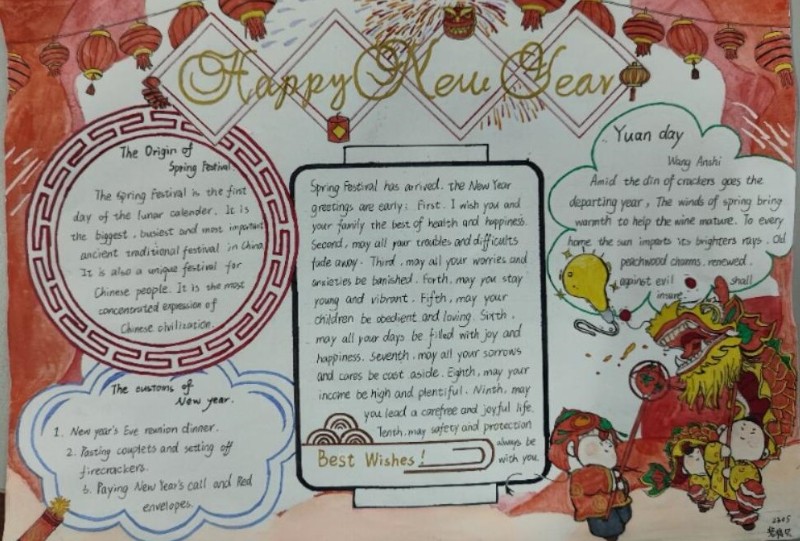 Happy New Year
The Origin of
Spring Festival.
The Spring Festival is the first
day of the lunar calender. It is
the biggest, busiest and most important
ancient traditional festival in China
It is also a unique festival for
Chinese people. It is the most
concentrated expression of
Chinese civilization.
The customs of
New year.
1. New year's Eve reunion dinner.
2. Pasting couplets and setting off
firecrackers.
3. Paying New Year's call and Red
envelopes.
Spring Festival has arrived. the New Year
greetings are early: First. I wish you and
your family the best of health and happiness.
Second, may all your troubles and difficults
fade away. Third, may all your worries and
anxieties be banished. Forth, may you stay
young and vibrant. Fifth, may your
children be obedient and loving. Sixth,
may all your days be filled with joy and
happiness. Seventh, may all your sorrows
and cares be cast aside. Eighth, may your
income be high and plentiful. Ninth, may
you lead a carefree and joyful life.
Tenth, may safety and protection
always be
with you.
Best Wishes!
Yuan day
Wang Anshi
Amid the din of crackers goes the
departing year, The winds of spring bring
warmth to help the wine mature. To every
home the sun imparts its brighters rays. Old
peachwood charms. renewed.
against evil shall
insure